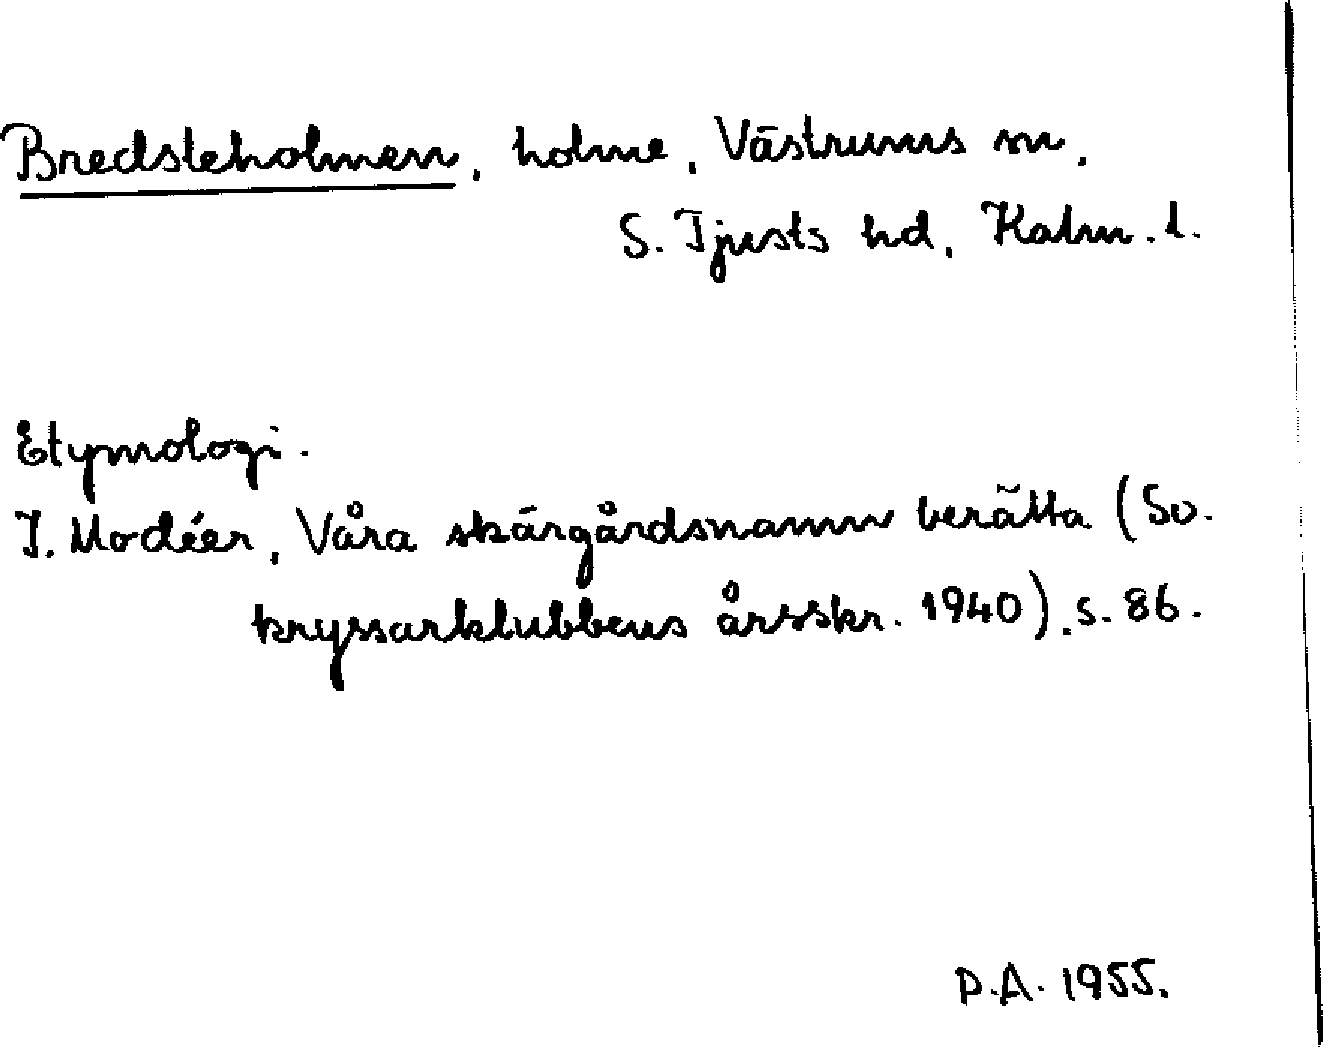 Bredsteholmen, holme, Västrums sn,
S. Tjusts hd, Kalm. l.
Etymologi.
I. Modéer, Våra skärgårdsnamn berätta (Sv.
kryssarklubbens årsskr. 1940). s. 86.
P.A. 1955.